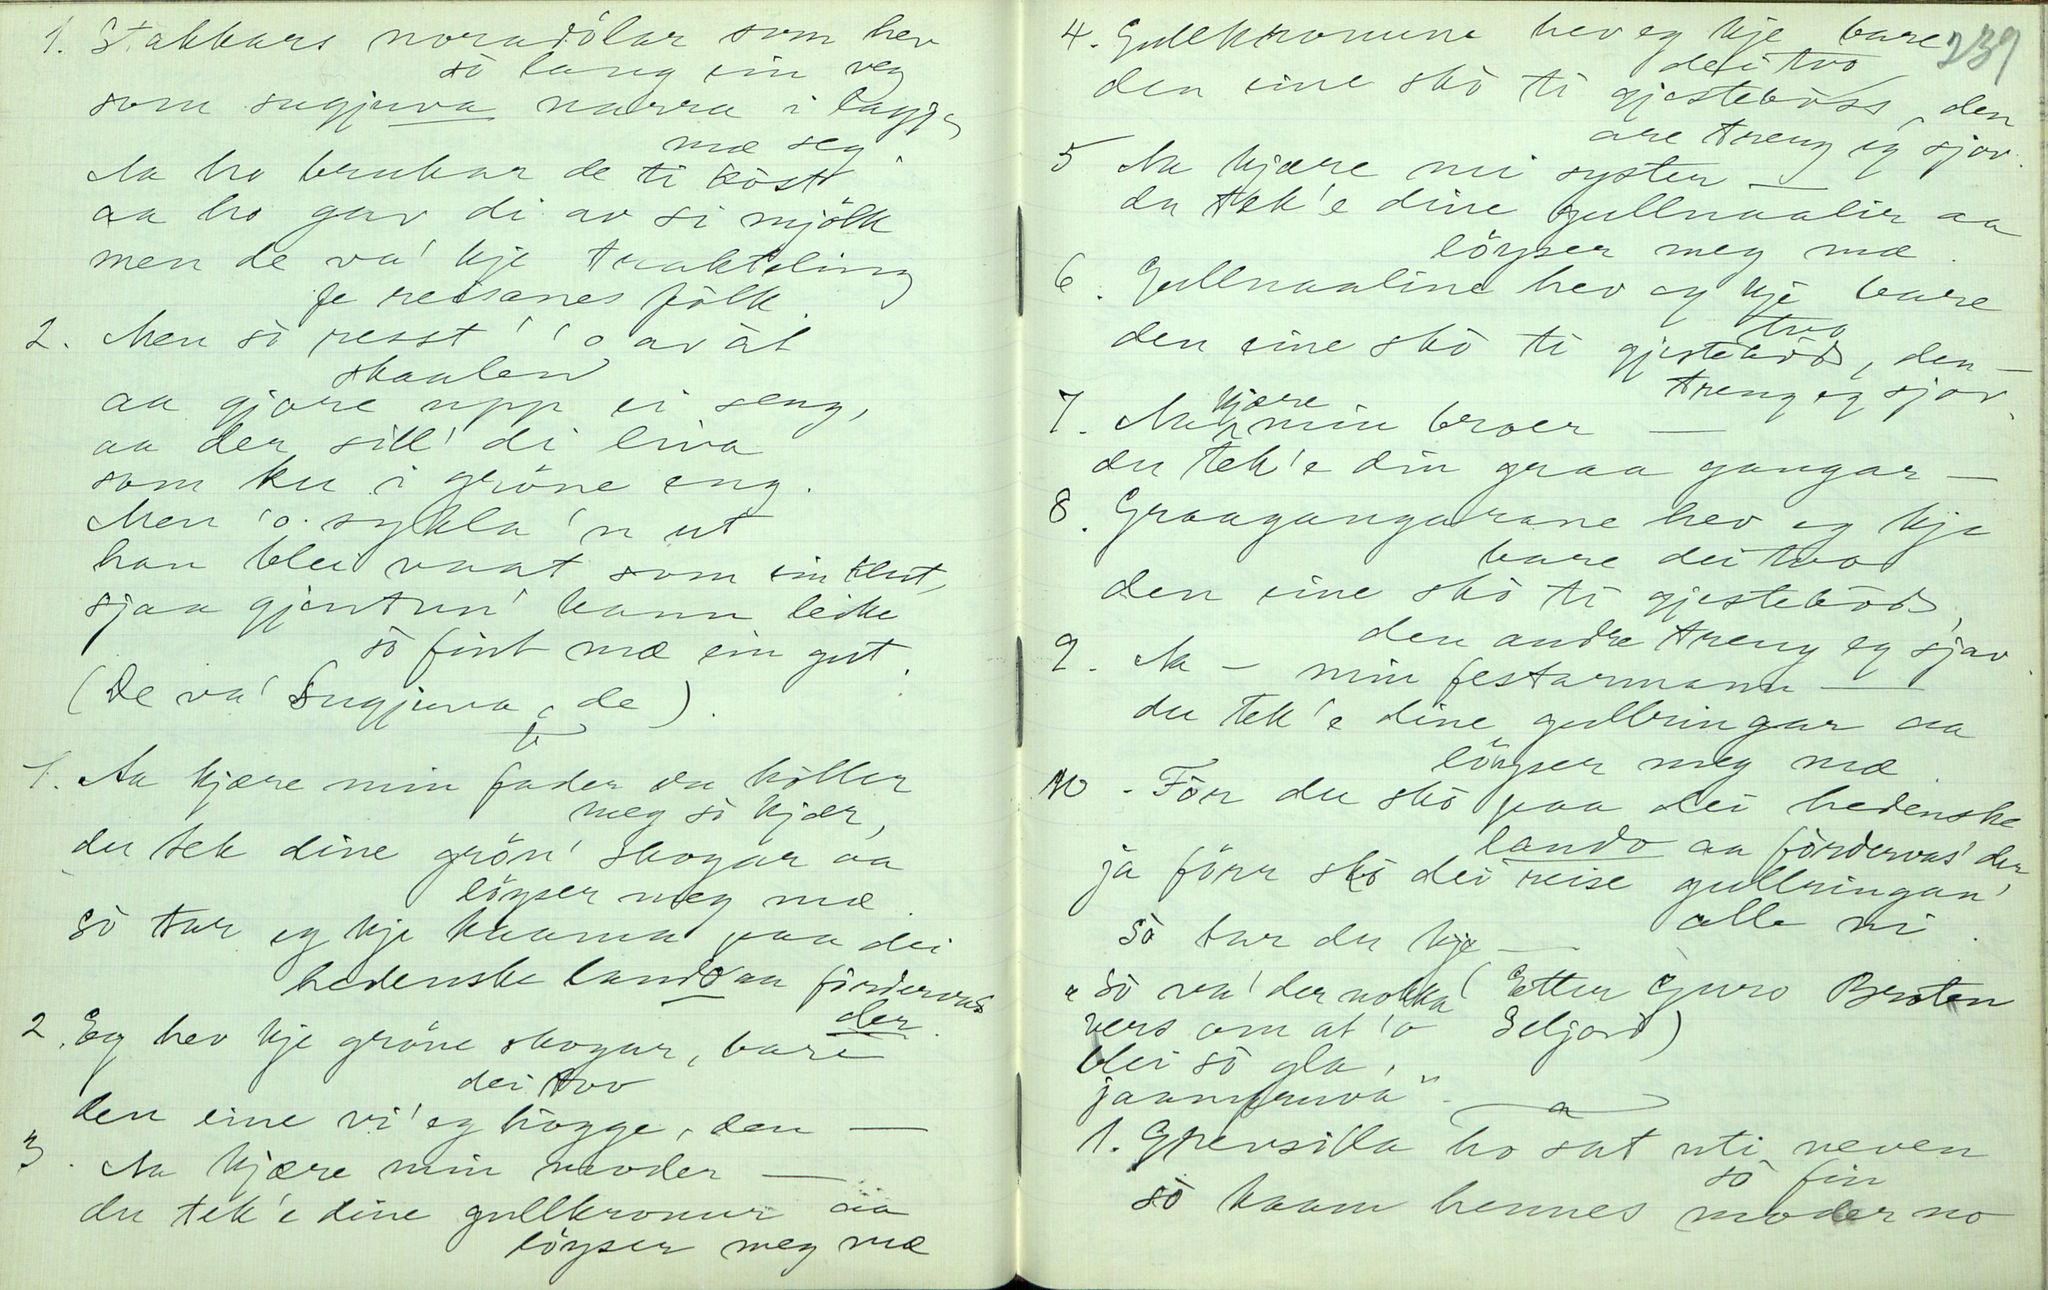 1. Stakkars noradölar som hev
so lang ein veg
som sugjuva narra i laggje
mæ seg.
Aa ho brukar de ti kost
aa ho gav di av si mjölk
men de va' kje trakteling
fe reisanes folk.
2. Men so resst' 'o av ål
skaalen
aa gjore upp ei seng,
aa der sill' di liva
som ku i gröne eng.
Men 'o sykla 'n ut
han blei vaat som ein klut,
sjaa gjentun' kann leike
so fint mæ ein gut.
(De va' Sugjuva, de).
1. Aa kjære min fader du höller
meg so kjær,
du tek dine grön' skogar aa
löyser meg mæ.
So tar eg kje kaama paa dei
hedenske lando aa fördervas
der.
2. Eg hev kje gröne skogar, bare
dei tvo
den eine vi' eg högge, den —
3. Aa kjære min moder —
du tek 'e dine gullkronur aa
löyser meg mæ
239
4. Gullkronune hev eg kje bare
dei tvo
den eine sko ti gjesteboss, den
are treng eg sjov.
5 Aa kjære mi syster —
du tek 'e dine gullnaalir aa
löyser meg mæ.
6. Gullnaaline hev eg kje bare
tvo
den eine sko ti gjestebod, den —
treng eg sjov.
7. Aa kjære min broer —
du tek 'e din graa gangar —
8. Graagangarane hev eg kje
bare dei tvo
den eine sko ti gjestebod,
den andre treng eg sjav.
9. Aa — min festarmann —
du tek 'e dine gullringar aa
löyser meg mæ.
10. Förr du sko paa dei hedenske
lando aa fördervas' der
ja förr sko dei reise gullringan'
alle ni.
So tar du kje —
so va' der nokka (Etter Guro Broten
vers om at 'o Seljord)
blei so gla,
jaamfruva".
1. Spersilla ho sat uti neven
so fin
so kaam hennes moder no